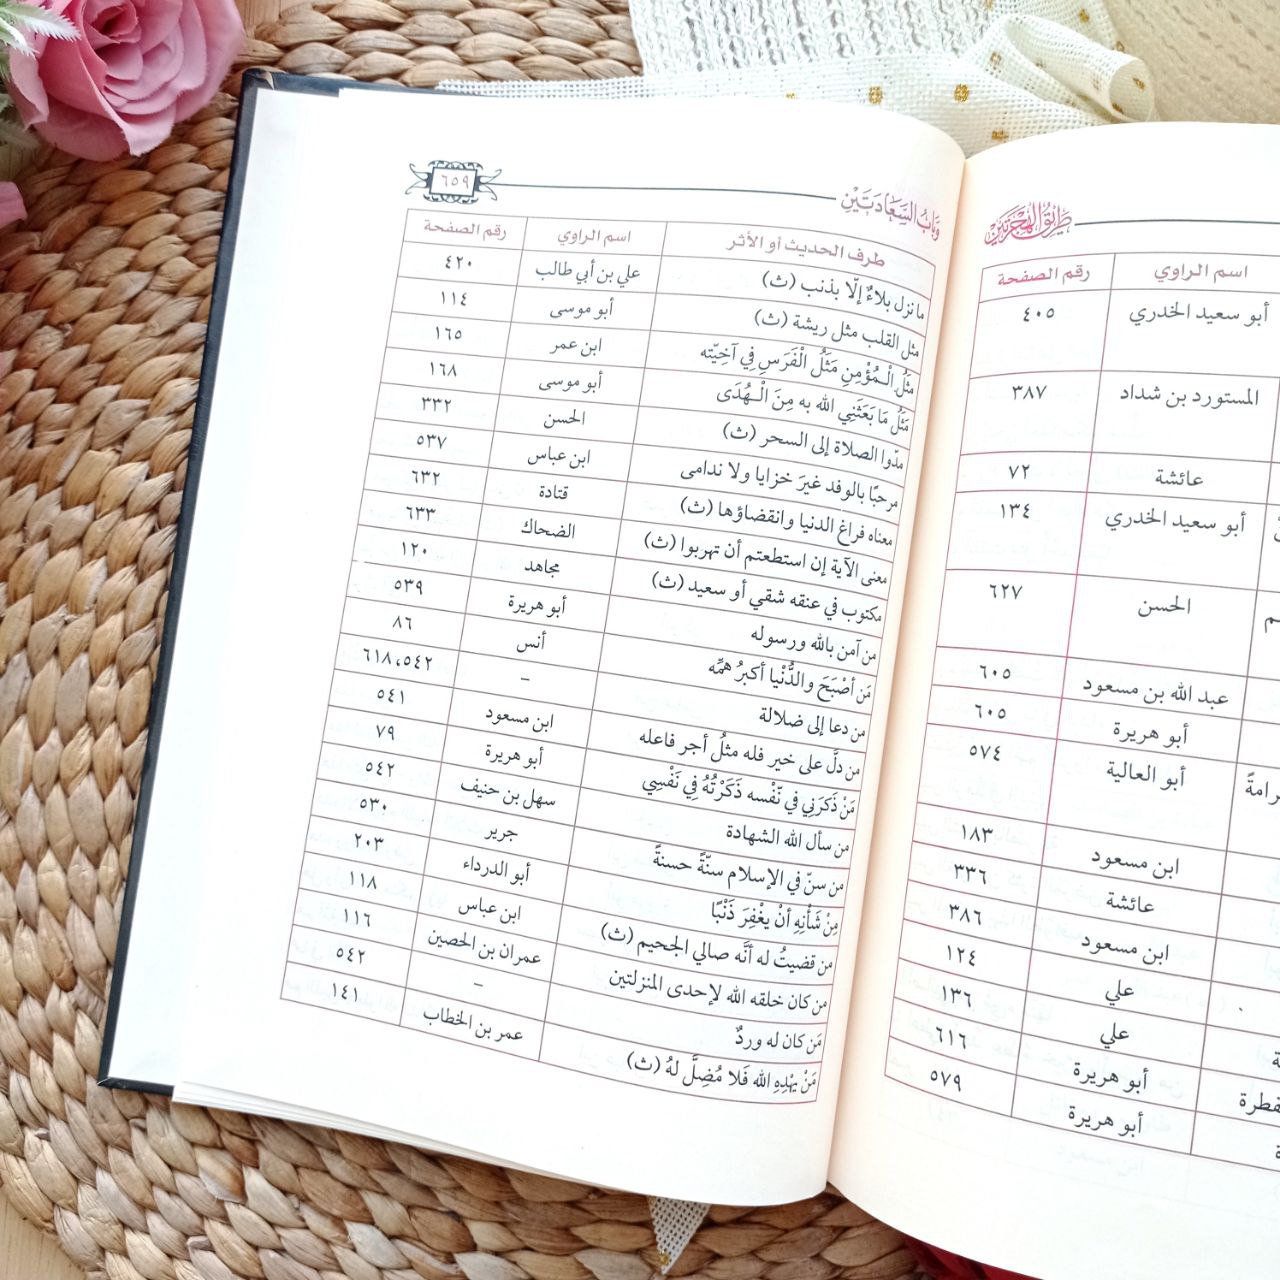 طريق الهجرتين
اسم الراوي رقم الصفحة
أبو سعيد الخدري ٤٠٥
المستورد بن شداد ٣٨٧
عائشة ٧٢
أبو سعيد الخدري ١٣٤
الحسن ٦٢٧
عبد الله بن مسعود ٦٠٥
أبو هريرة ٦٠٥
أبو العالية ٥٧٤
ابن مسعود ١٨٣
عائشة ٣٣٦
ابن مسعود ٣٨٦
علي ١٢٤
علي ١٣٦
أبو هريرة ٦١٦
أبو هريرة ٥٧٩
وباب السعادتين ٦٥٩
طرف الحديث أو الأثر اسم الراوي رقم الصفحة
ما نزل بلاءٌ إلّا بذنب (ث) علي بن أبي طالب ٤٢٠
مثل القلب مثل ريشة (ث) أبو موسى ١١٤
مَثَلُ الْمُؤْمِنِ مَثَلُ الْفَرَسِ فِي آخِيّته ابن عمر ١٦٥
مَثَلُ مَا بَعَثَنِي الله به مِنَ الْهُدَى أبو موسى ١٦٨
مدّوا الصلاة إلى السحر (ث) الحسن ٣٣٢
مرحبًا بالوفد غيرَ خزايا ولا ندامى ابن عباس ٥٣٧
معناه فراغ الدنيا وانقضاؤها (ث) قتادة ٦٣٢
معنى الآية إن استطعتم أن تهربوا (ث) الضحاك ٦٣٣
مكتوب في عنقه شقي أو سعيد (ث) مجاهد ١٢٠
من آمن بالله ورسوله أبو هريرة ٥٣٩
مَن أصْبَحَ والدُّنْيا أكبرُ همّه أنس ٨٦
من دعا إلى ضلالة – ٥٤٢، ٦١٨
من دلَّ على خير فله مثلُ أجر فاعله ابن مسعود ٥٤١
مَنْ ذَكَرَنِي في نَفْسه ذَكَرْتُهُ فِي نَفْسِي أبو هريرة ٧٩
من سأل الله الشهادة سهل بن حنيف ٥٤٢
من سنّ في الإسلام سنّةً حسنةً جرير ٥٣٠
مِنْ شَأْنِهِ أنْ يغْفِرَ ذَنْبًا أبو الدرداء ٢٠٣
من قضيتُ له أنّه صالي الجحيم (ث) ابن عباس ١١٨
من كان خلقه الله لإحدى المنزلتين عمران بن الحصين ١١٦
مَن كان له وردٌ – ٥٤٢
مَنْ يهْدِهِ الله فَلا مُضِلَّ لهُ (ث) عمر بن الخطاب ١٤١